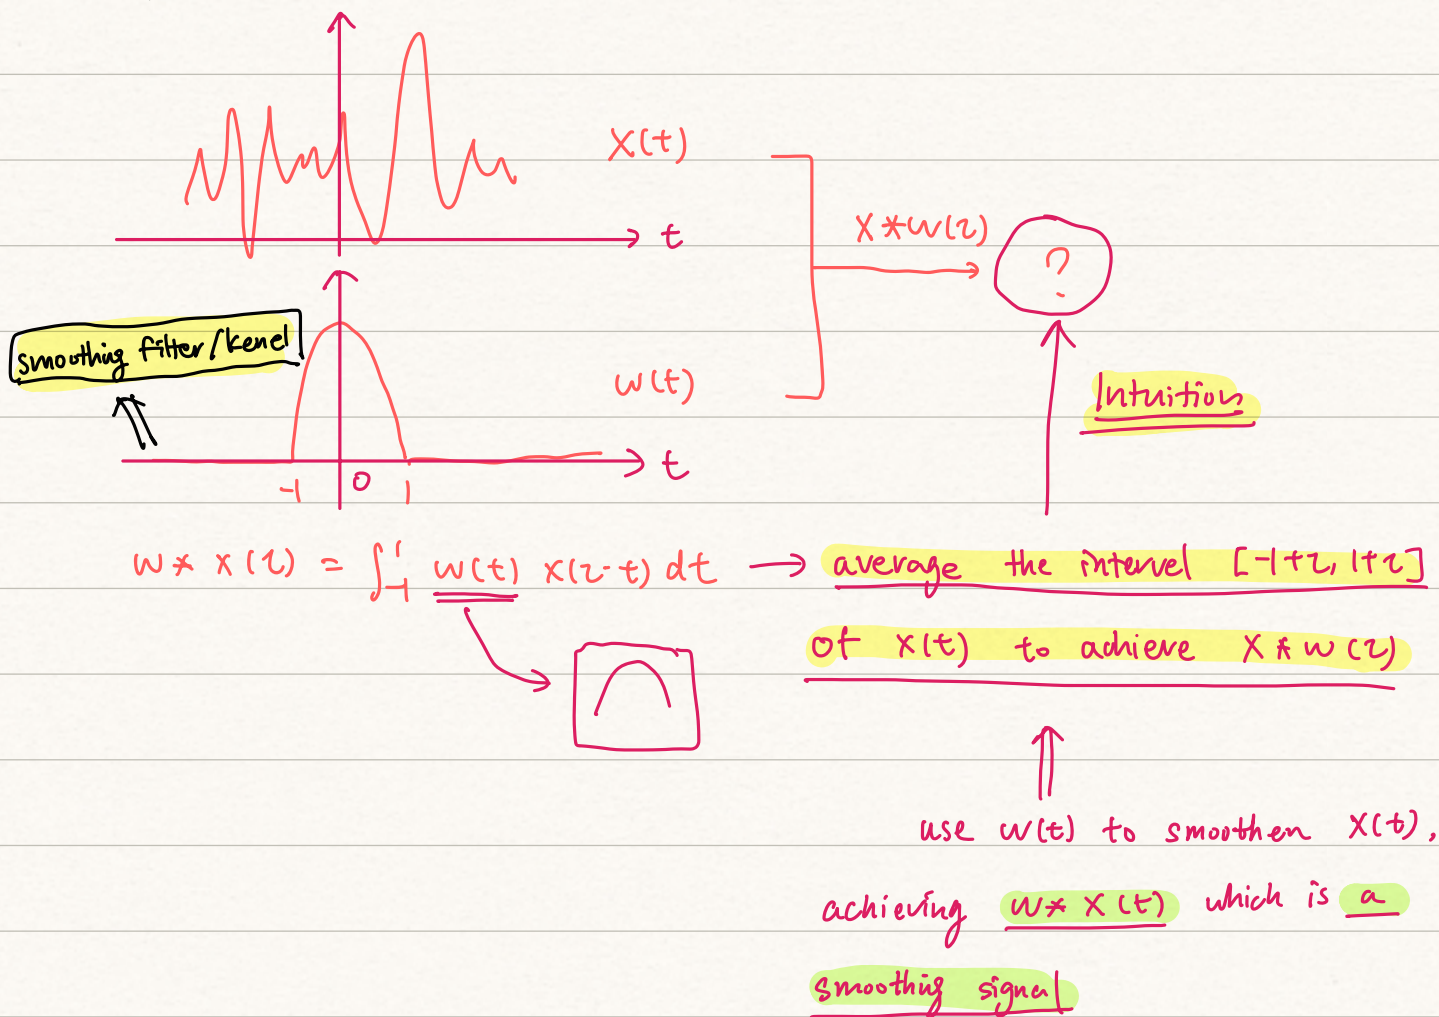 X(t)
t
X*w(τ)
?
smoothing filter/kenel
w(t)
Intuition
t
-1 0 1
w * x(τ) = ∫₋₁¹ w(t) x(τ-t) dt → average the intervel [-1+τ, 1+τ]
of x(t) to achieve X * w(τ)
use w(t) to smoothen X(t),
achieving w* X(t) which is a
smoothing signal